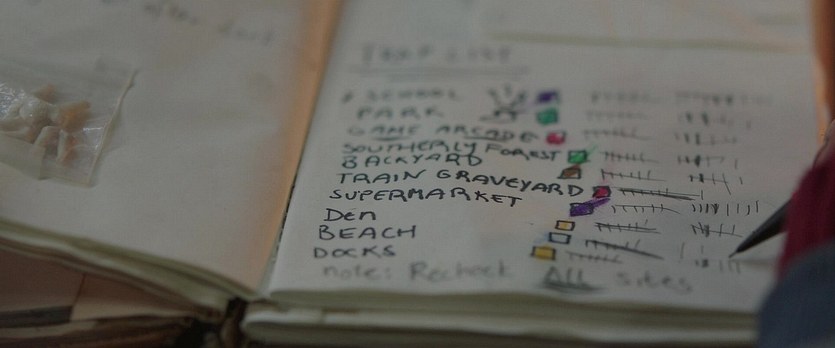 TRAP LIST
SCHOOL
PARK
GAME ARCADE
SOUTHERLY FOREST
BACKYARD
TRAIN GRAVEYARD
SUPERMARKET
Den
BEACH
DOCKS
note: Recheck ALL sites